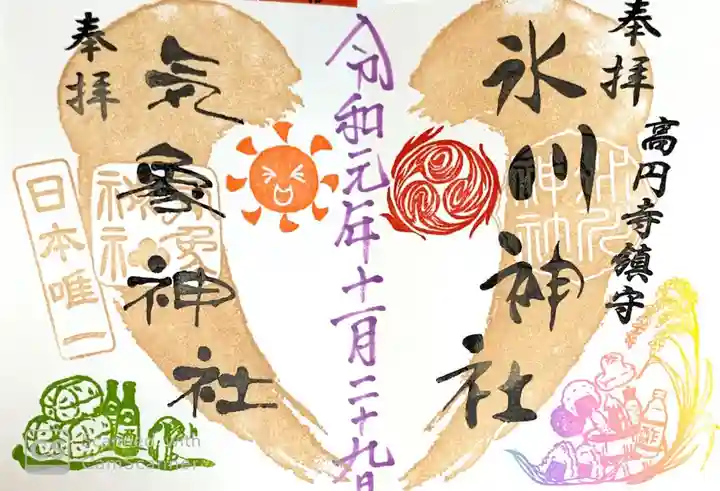 奉拝
高円寺鎮守
氷川神社
令和元年十一月二十九日
奉拝
気象神社
日本唯一
酢
Scanned with
CamScanner